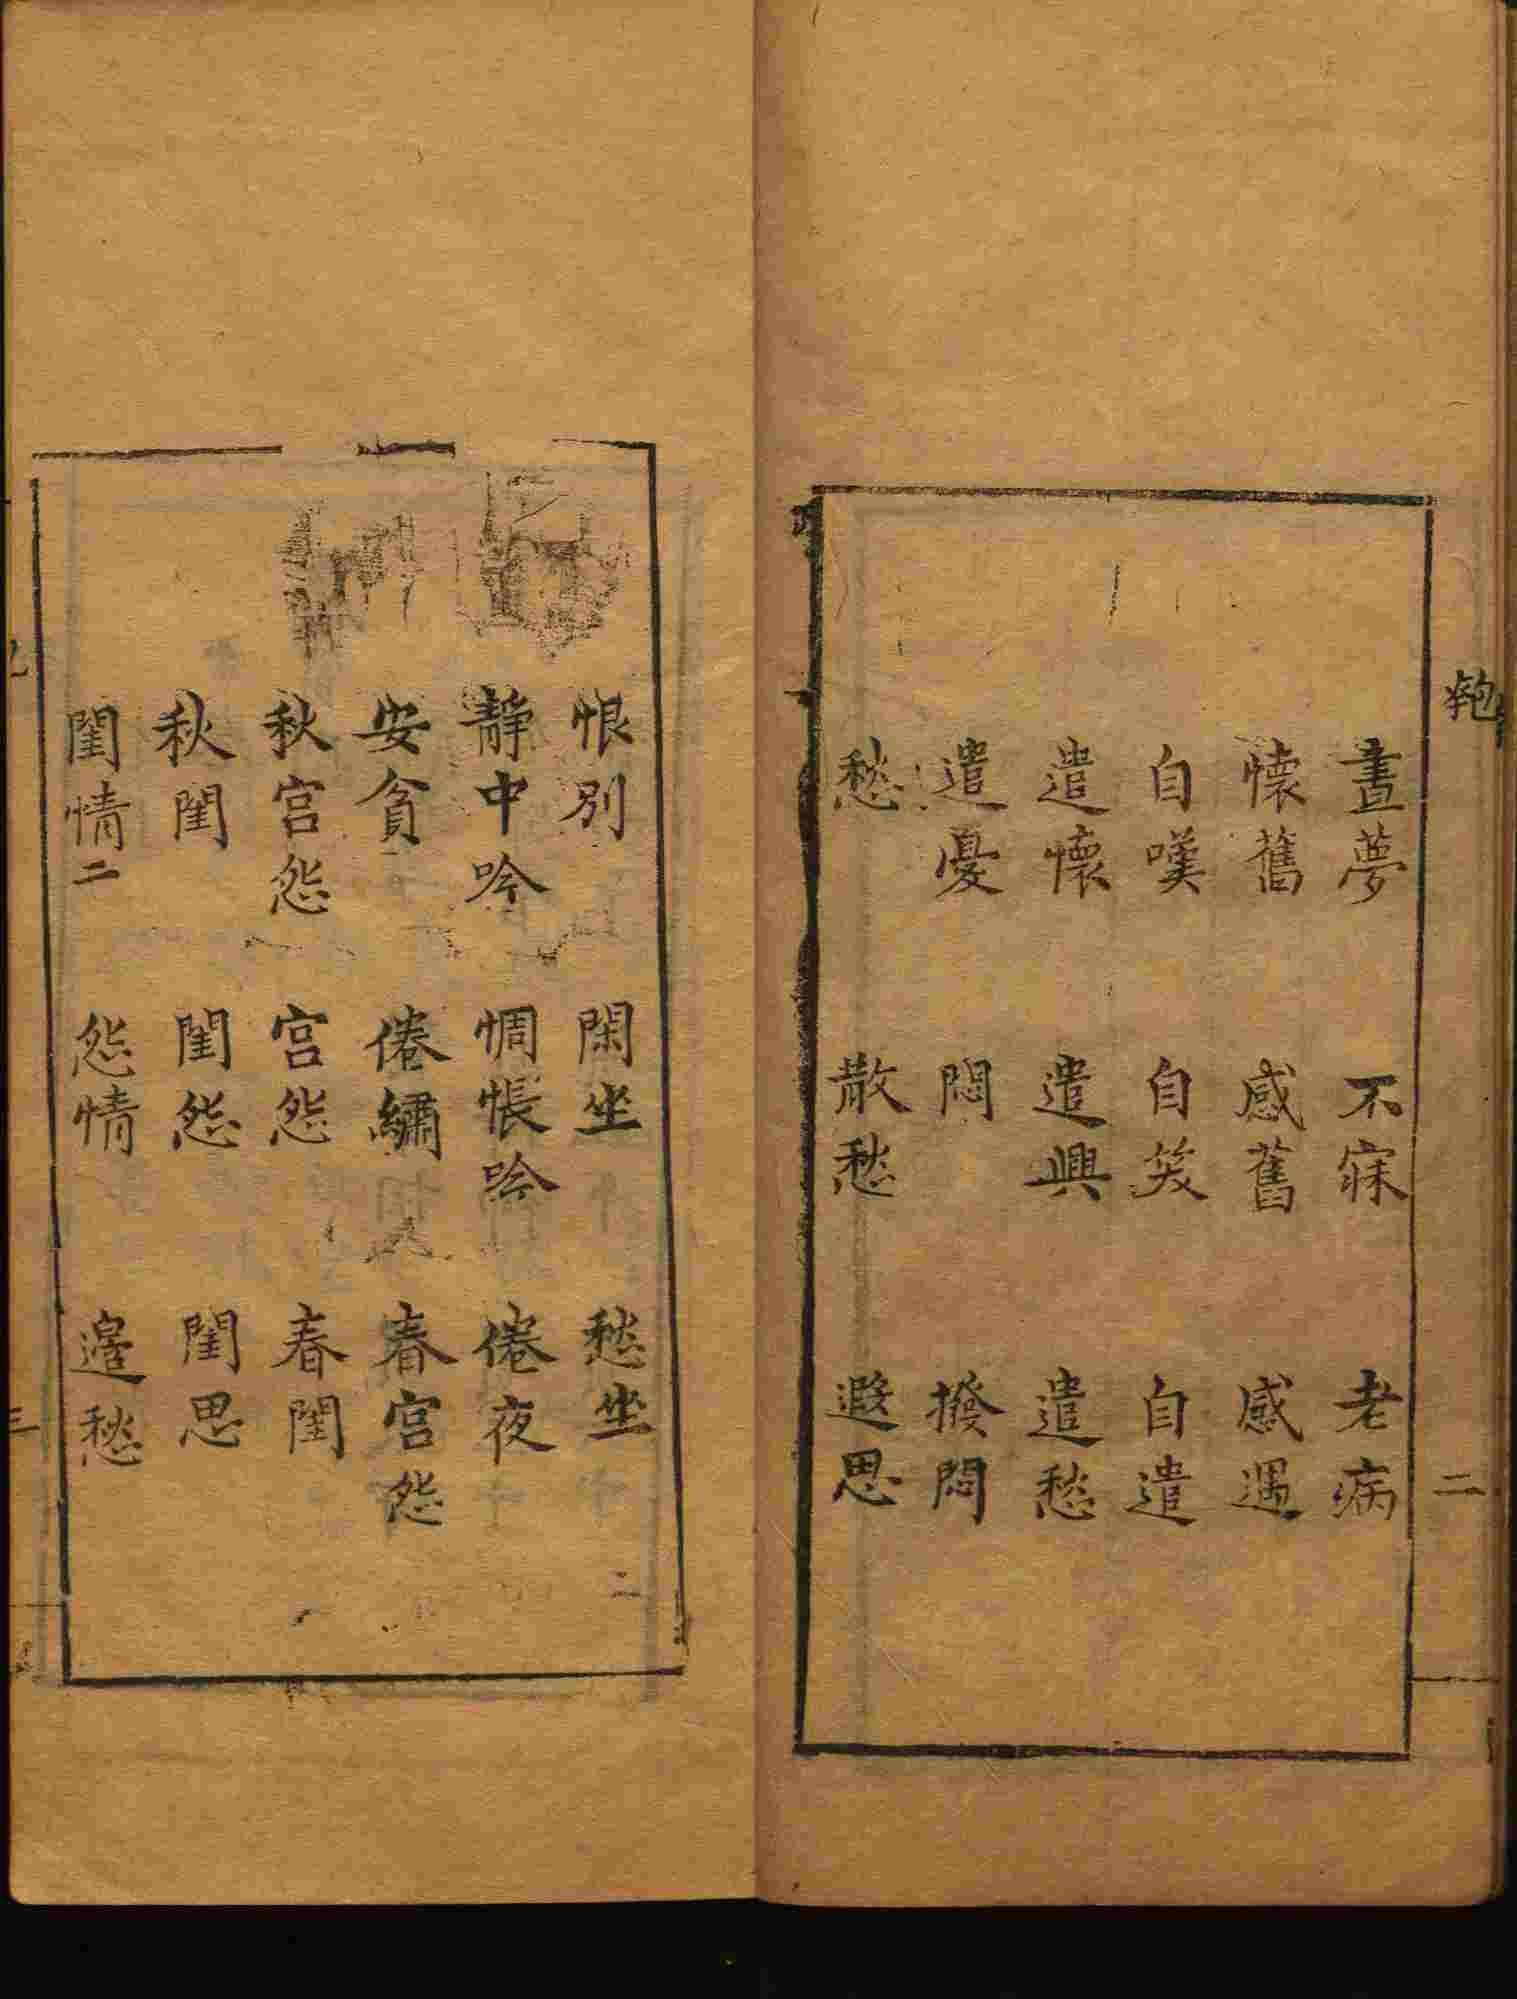 晝夢　不寐　老病
懐舊　感舊　感遇
自嘆　自笑　自遣
遣懷　遣興　遣愁
遣憂　悶　撥悶
愁　散愁　遐思
二
恨別　閑坐　愁坐
靜中吟　惆悵吟　倦夜
安貧　倦繡　春宮怨
秋宮怨　宮怨　春閨
秋閨　閨怨　閨思
閨情二　怨情　邊愁
二
三